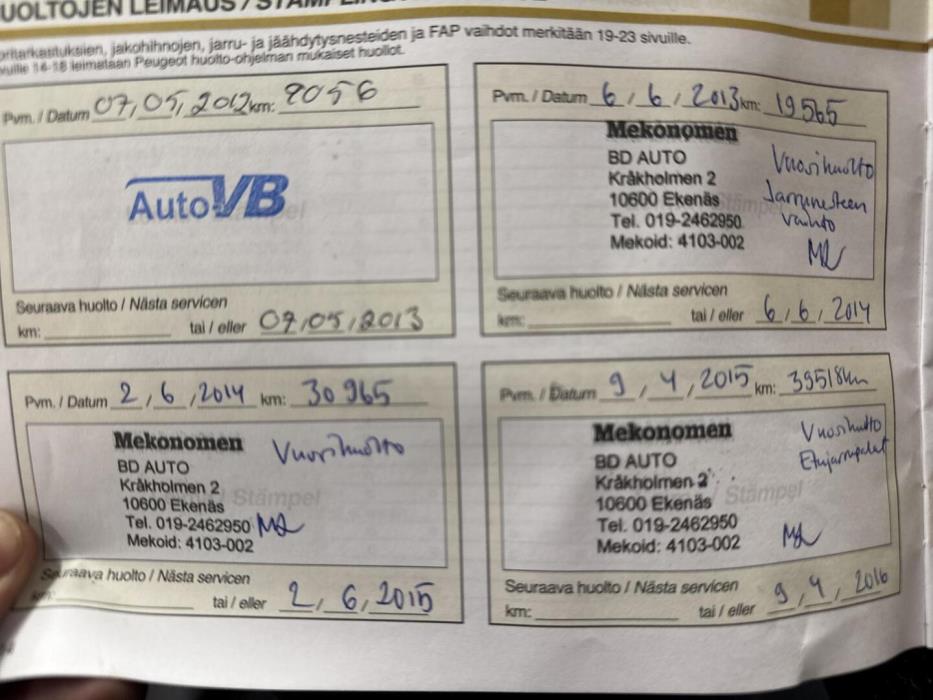 UOLTOJEN LEIMAUS / STÄMPLING
jakohihnojen, jarru- ja jäähdytysnesteiden ja FAP vaihdot merkitään 19-23 sivuille.
16-18 leimataan Peugeot huolto-ohjelman mukaiset huollot.
Pvm. / Datum 07, 05, 2012 km: 9056
Auto VB
Seuraava huolto / Nästa servicen
km: tai / eller 07, 05, 2013
Pvm. / Datum 6 / 6 / 2013 km: 19565
Mekonomen
BD AUTO
Kråkholmen 2
10600 Ekenäs
Tel. 019-2462950
Mekoid: 4103-002
Vuosihuolto
Jarrunesteen
vaihto
Stämpel
Seuraava huolto / Nästa servicen
km: tai / eller 6 / 6 / 2014
Pvm. / Datum 2 / 6 / 2014 km: 30965
Mekonomen
BD AUTO
Kråkholmen 2
10600 Ekenäs
Tel. 019-2462950
Mekoid: 4103-002
Vuosihuolto
Stämpel
Seuraava huolto / Nästa servicen
km: tai / eller 2, 6, 2015
Pvm. / Datum 9, 4, 2015 km: 39518km
Mekonomen
BD AUTO
Kråkholmen 2
10600 Ekenäs
Tel. 019-2462950
Mekoid: 4103-002
Vuosihuolto
Etujarrupalat
Stämpel
Seuraava huolto / Nästa servicen
km: tai / eller 9, 4, 2016